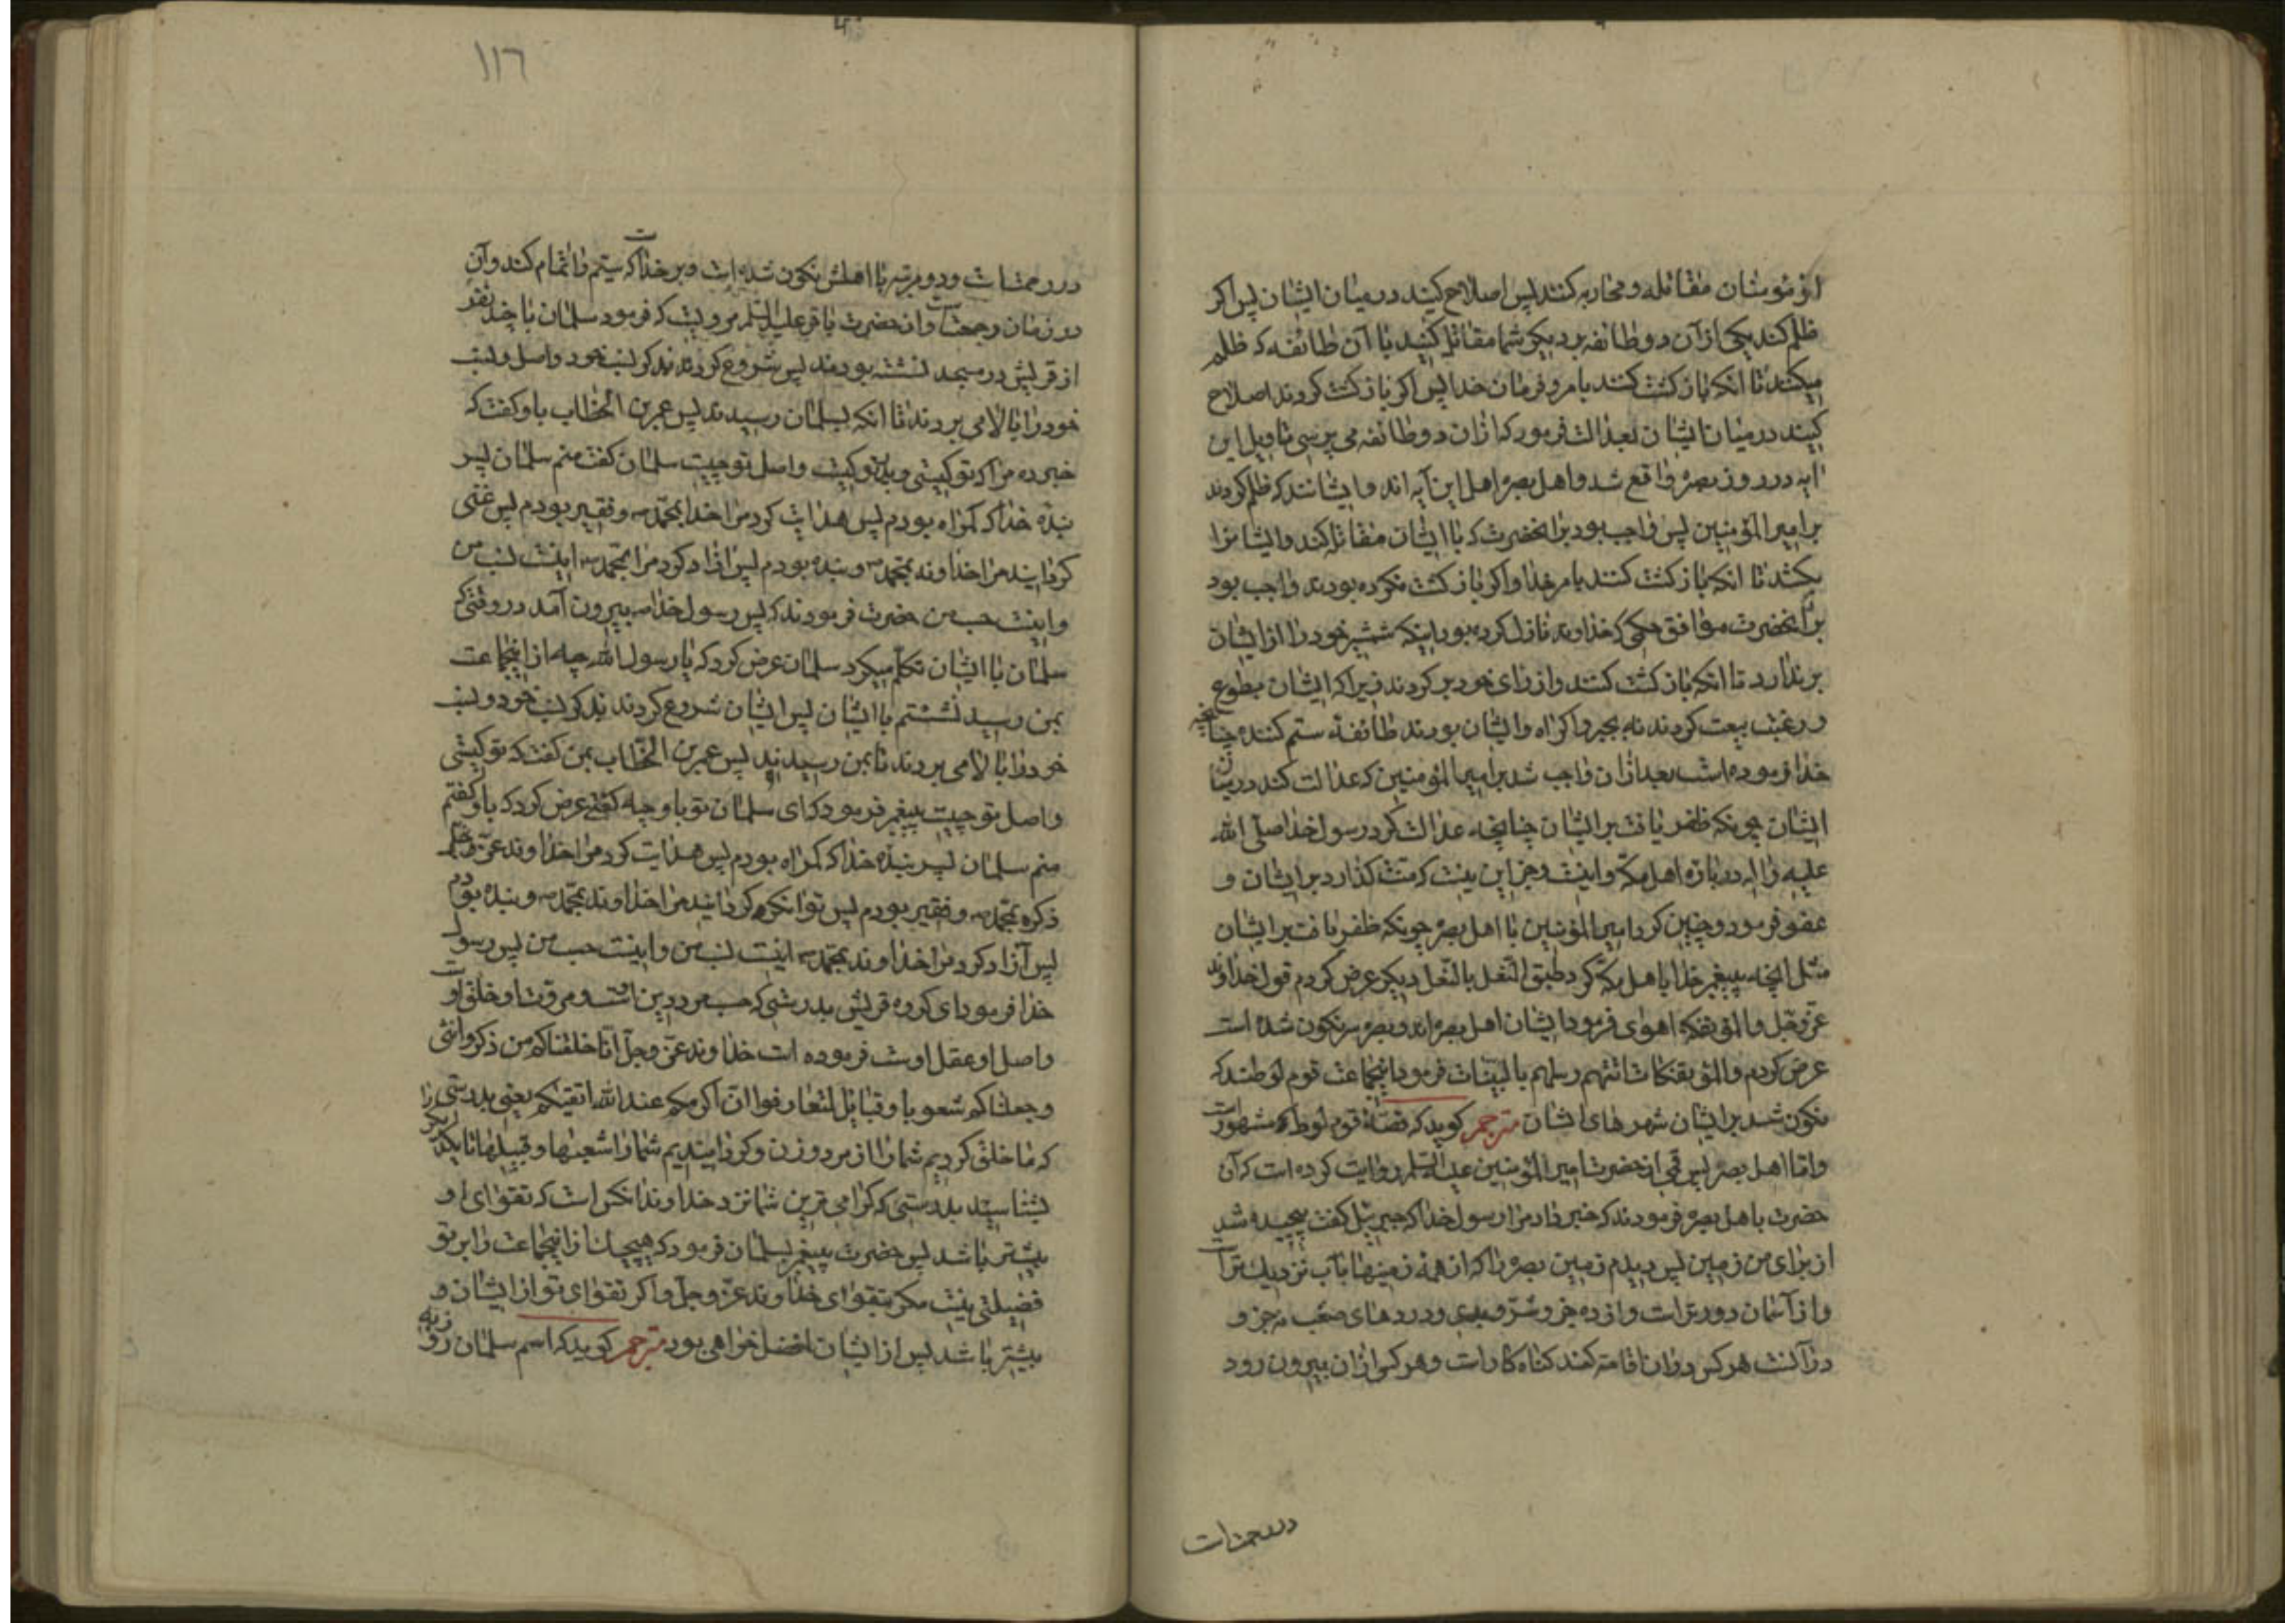 از مؤمنان مقاتله و محاربه کنند پس اصلاح کنید در میان ایشان پس اکر
ظلم کند یکی از آن دو طائفه بر دیکری شما مقاتله کنید با آن طائفه که ظلم
میکند تا انکه باز کشت کنند بامر و فرمان خدا پس اکر باز کشت کردند اصلاح
کنید در میان ایشان بعدالت فرمود که ازان دو طائفه می پرسی تاویل این
ایه در روز بصره واقع شد و اهل بصره اهل این آیه اند و ایشانند که ظلم کردند
بر امیر المؤمنین پس واجب بود بر انحضرت که با ایشان مقاتله کند و ایشانرا
بکشد تا انکه باز کشت کنند بامر خدا و اکر باز کشت نکرده بودند واجب بود
بر آنحضرت موافق حکمی که خداوند نازل کرده بود اینکه شمشیر خود را از ایشان
بر ندارد تا انکه باز کشت کنند و از رای خود بر کردند زیرا که ایشان بطوع
و رغبت بیعت کردند نه بجبر و اکراه و ایشان بودند طائفه ستم کننده چنانچه
خدا فرموده است بعد ازان واجب شد بر امیر المؤمنین که عدالت کند در میان
ایشان چونکه ظفر یافت بر ایشان چنانچه عدالت کرد رسول خدا صلی الله
علیه و اله در باره اهل مکه و اینست و جز این نیست که منت کذارد بر ایشان و
عفو فرمود و چنین کرد امیر المؤمنین با اهل بصره چونکه ظفر یافت بر ایشان
مثل انچه پیغمبر خدا باهل مکه کرد طبق النعل بالنعل دیکر عرض کردم قول خداوند
عز و جل والمؤتفکه اهوی فرمود ایشان اهل بصره اند و بصره سرنکون شده است
عرض کردم والمؤتفکات اتتهم رسلهم بالبینات فرمود انجماعت قوم لوطند که
نکون شد بر ایشان شهرهای ایشان مترجم کوید که قصه قوم لوط که مشهور است
و اما اهل بصره پس قمی از حضرت امیر المؤمنین علیه السلم روایت کرده است که آن
حضرت باهل بصره فرمودند که خبر داد مرا رسول خدا که جبرئیل کفت پیچیده شد
از برای من زمین پس دیدم زمین بصره را که از همه زمینها بآب نزدیک تر است
و از آسمان دورتر است و از ده جزو شر و بدی و دردهای صعب نه جزو
در آنست هر کس دران اقامه کند کناه کار است و هر کس ازان بیرون رود
در رحمت است
۱۱٦
در رحمت است و دو مرتبه با اهلش نکون شده است و بر خداست که سیم را تمام کند و آن
در زمان رجعت است و از حضرت باقر علیه السلم مرویست که فرمود سلمان با چند نفر
از قریش در مسجد نشسته بودند پس شروع کردند بذکر نسب خود و اصل و نسب
خود را بالا می بردند تا انکه بسلمان رسیدند پس عمر بن الخطاب باو کفت که
خبر ده مرا که تو کیستی و پدر تو کیست و اصل تو چیست سلمان کفت منم سلمان پسر
بنده خدا که کمراه بودم پس هدایت کرد مرا خدا بمحمد ص و فقیر بودم پس غنی
کردانید مرا خداوند بمحمد ص و بنده بودم پس ازاد کرد مرا بمحمد ص اینست نسب من
و اینست حسب من حضرت فرمودند که پس رسول خدا ص بیرون آمد در وقتی که
سلمان با ایشان تکلم میکرد سلمان عرض کرد که یا رسول الله چه از انجماعت
بمن رسید نشستم با ایشان پس ایشان شروع کردند بذکر نسب خود و نسب
خود را بالا می بردند تا بمن رسیدند پس عمر بن الخطاب بمن کفت که تو کیستی
و اصل تو چیست پیغمبر فرمود که ای سلمان تو باو چه کفتی عرض کرد که باو کفتم
منم سلمان پسر بنده خدا که کمراه بودم پس هدایت کرد مرا خداوند عز
ذکره بمحمد ص و فقیر بودم پس توانکر کردانید مرا خداوند بمحمد ص و بنده بودم
پس آزاد کرد مرا خداوند بمحمد ص اینست نسب من و اینست حسب من پس رسول
خدا فرمود ای کروه قریش بدرستی که حسب مرد دین اوست و مروت او خلق اوست
و اصل او عقل اوست فرموده است خداوند عز و جل انا خلقناکم من ذکر وانثی
وجعلناکم شعوبا وقبائل لتعارفوا ان اکرمکم عند الله اتقیکم یعنی بدرستی
که ما خلق کردیم شما را از مرد و زن و کردانیدیم شما را شعبها و قبیلها تا یکدیکر را
بشناسید بدرستی که کرامی ترین شما نزد خداوند انکس است که تقوای او
بیشتر باشد پس حضرت پیغمبر بسلمان فرمود که هیچیک از انجماعت را بر تو
فضیلتی نیست مکر بتقوای خداوند عز و جل و اکر تقوای تو از ایشان
بیشتر باشد پس از ایشان افضل خواهی بود مترجم کوید که اسم سلمان روزبه